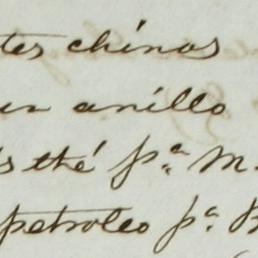 tes chinos
un anillo
s thé pª M.
petroleo pª B